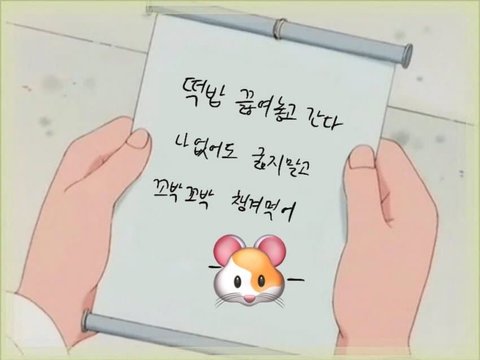 떡밥 끓여놓고 간다
나 없어도 굶지말고
꼬박꼬박 챙겨먹어